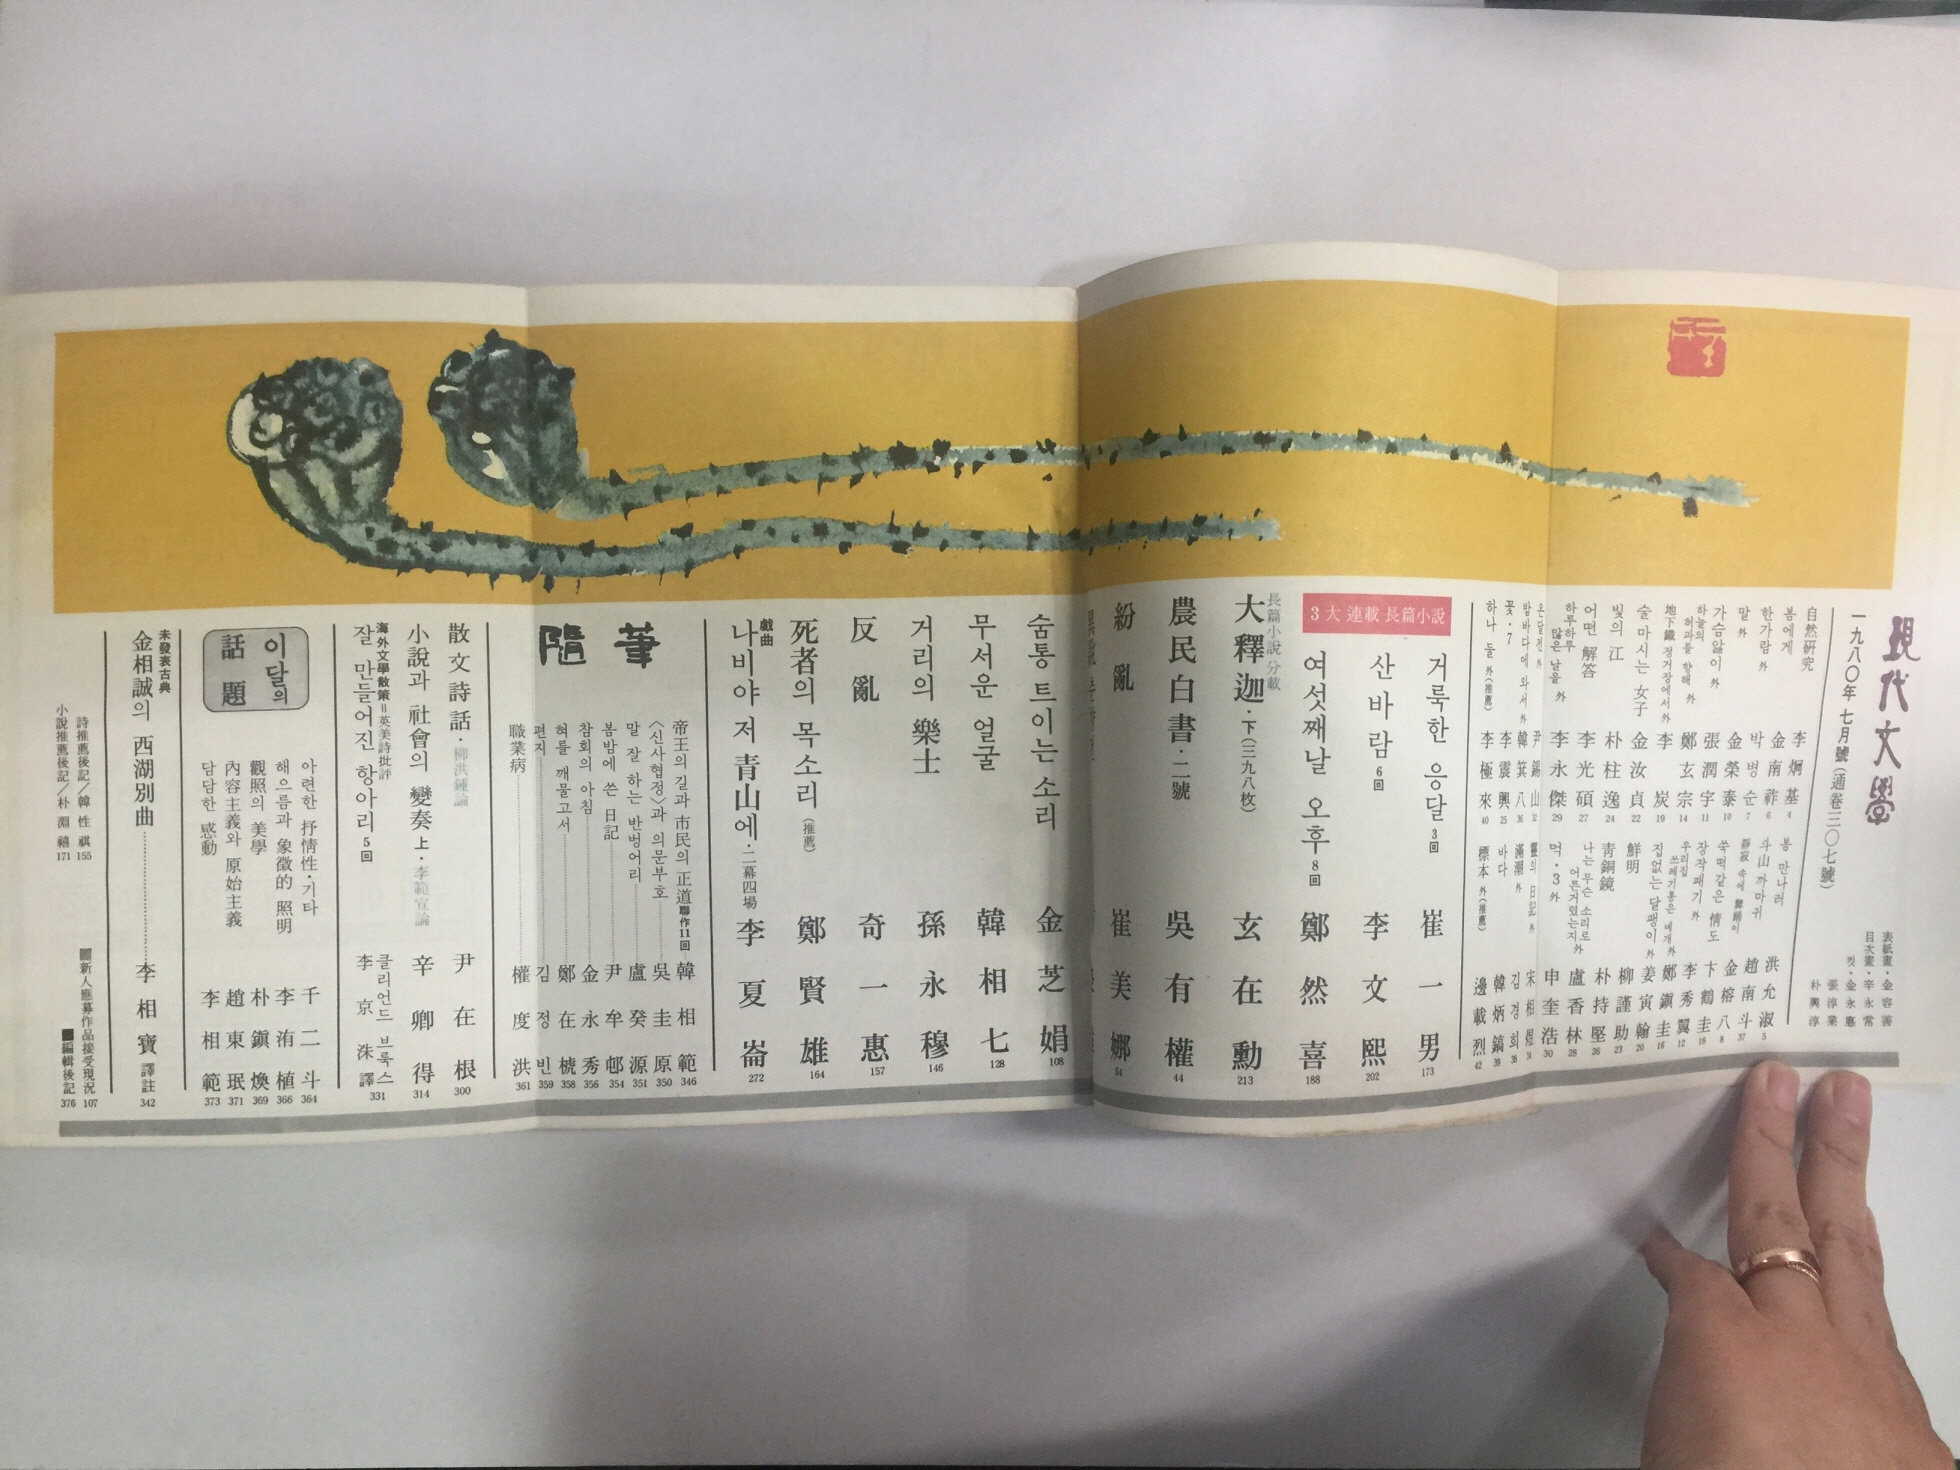 現代文學
一九八〇年 七月號 (通卷三〇七號)
表紙畫・金容善
目次畫・辛永常
컷・金永惠
張淳業
朴興淳
自然硏究 李炯基 4
봄에게 金南祚 6
한가람 外 박병순 7
말 外 金榮泰 10
가슴앓이 外 張潤宇 11
하늘의 허파를 향해 外 鄭玄宗 14
地下鐵 정거장에서 外 李炭 19
술 마시는 女子 金汝貞 22
빛의 江 朴柱逸 24
어떤 解答 李光碩 27
하루하루 많은 날을 外 李永傑 29
은달전 外 尹錫山 32
밤바다에 와서 外 韓箕八 36
꽃・7 李震興 25
하나 둘 外 (推薦) 李極來 40
봄 만나러 洪允淑 5
斗山 까마귀 趙南斗 37
靜寂 속에 金榕八 8
쑥떡같은 情도 卞鶴圭 18
장작패기 外 李秀翼 12
우리집 쓰레기통은 네개 外 鄭鎭圭 16
집없는 달팽이 外 姜寅翰 20
鮮明 柳謹助 23
靑銅鏡 朴持堅 26
나는 무슨 소리로 어른거렸는지 外 盧香林 28
먹・3 外 申奎浩 30
靈의 日記 外 宋相煜 34
滿潮 外 김경희 38
바다 韓炳鎬 39
標本 外 (推薦) 邊載烈 42
3大 連載 長篇小說
거룩한 응달 3回 崔一男 173
산바람 6回 李文熙 202
여섯째날 오후 8回 鄭然喜 188
長篇小說 分載
大釋迦・下 (三九八枚) 玄在勳 213
農民白書・二號 吳有權 44
紛亂 崔美娜 64
숨통 트이는 소리 金芝娟 108
무서운 얼굴 韓相七 128
거리의 樂士 孫永穆 146
反亂 奇一惠 157
死者의 목소리 (推薦) 鄭賢雄 164
戲曲
나비야 저 靑山에・二幕四場 李夏崙 272
隨筆
帝王의 길과 市民의 正道 聯作11回 韓相範 346
〈신사협정〉과 의문부호 吳圭原 350
말 잘 하는 반벙어리 盧癸源 351
봄밤에 쓴 日記 尹牟邨 354
참회의 아침 金永秀 356
혀를 깨물고서 鄭在虤 358
편지 김정빈 359
職業病 權度洪 361
散文詩話・柳洪鍾論 尹在根 300
小說과 社會의 變奏 上・李範宣論 辛卿得 314
海外文學散策=英美詩批評
잘 만들어진 항아리 5回 클리언드 브룩스 李京洙 譯 331
이달의 話題
아련한 抒情性・기타 千二斗 364
해으름과 象徵的 照明 李洧植 366
觀照의 美學 朴鎭煥 369
內容主義와 原始主義 趙東珉 371
담담한 感動 李相範 373
未發表古典
金相誠의 西湖別曲 李相寶 譯註 342
詩推薦後記／韓性祺 155
小說推薦後記／朴淵禧 171
■新人應募作品接受現況 107
■編輯後記 376